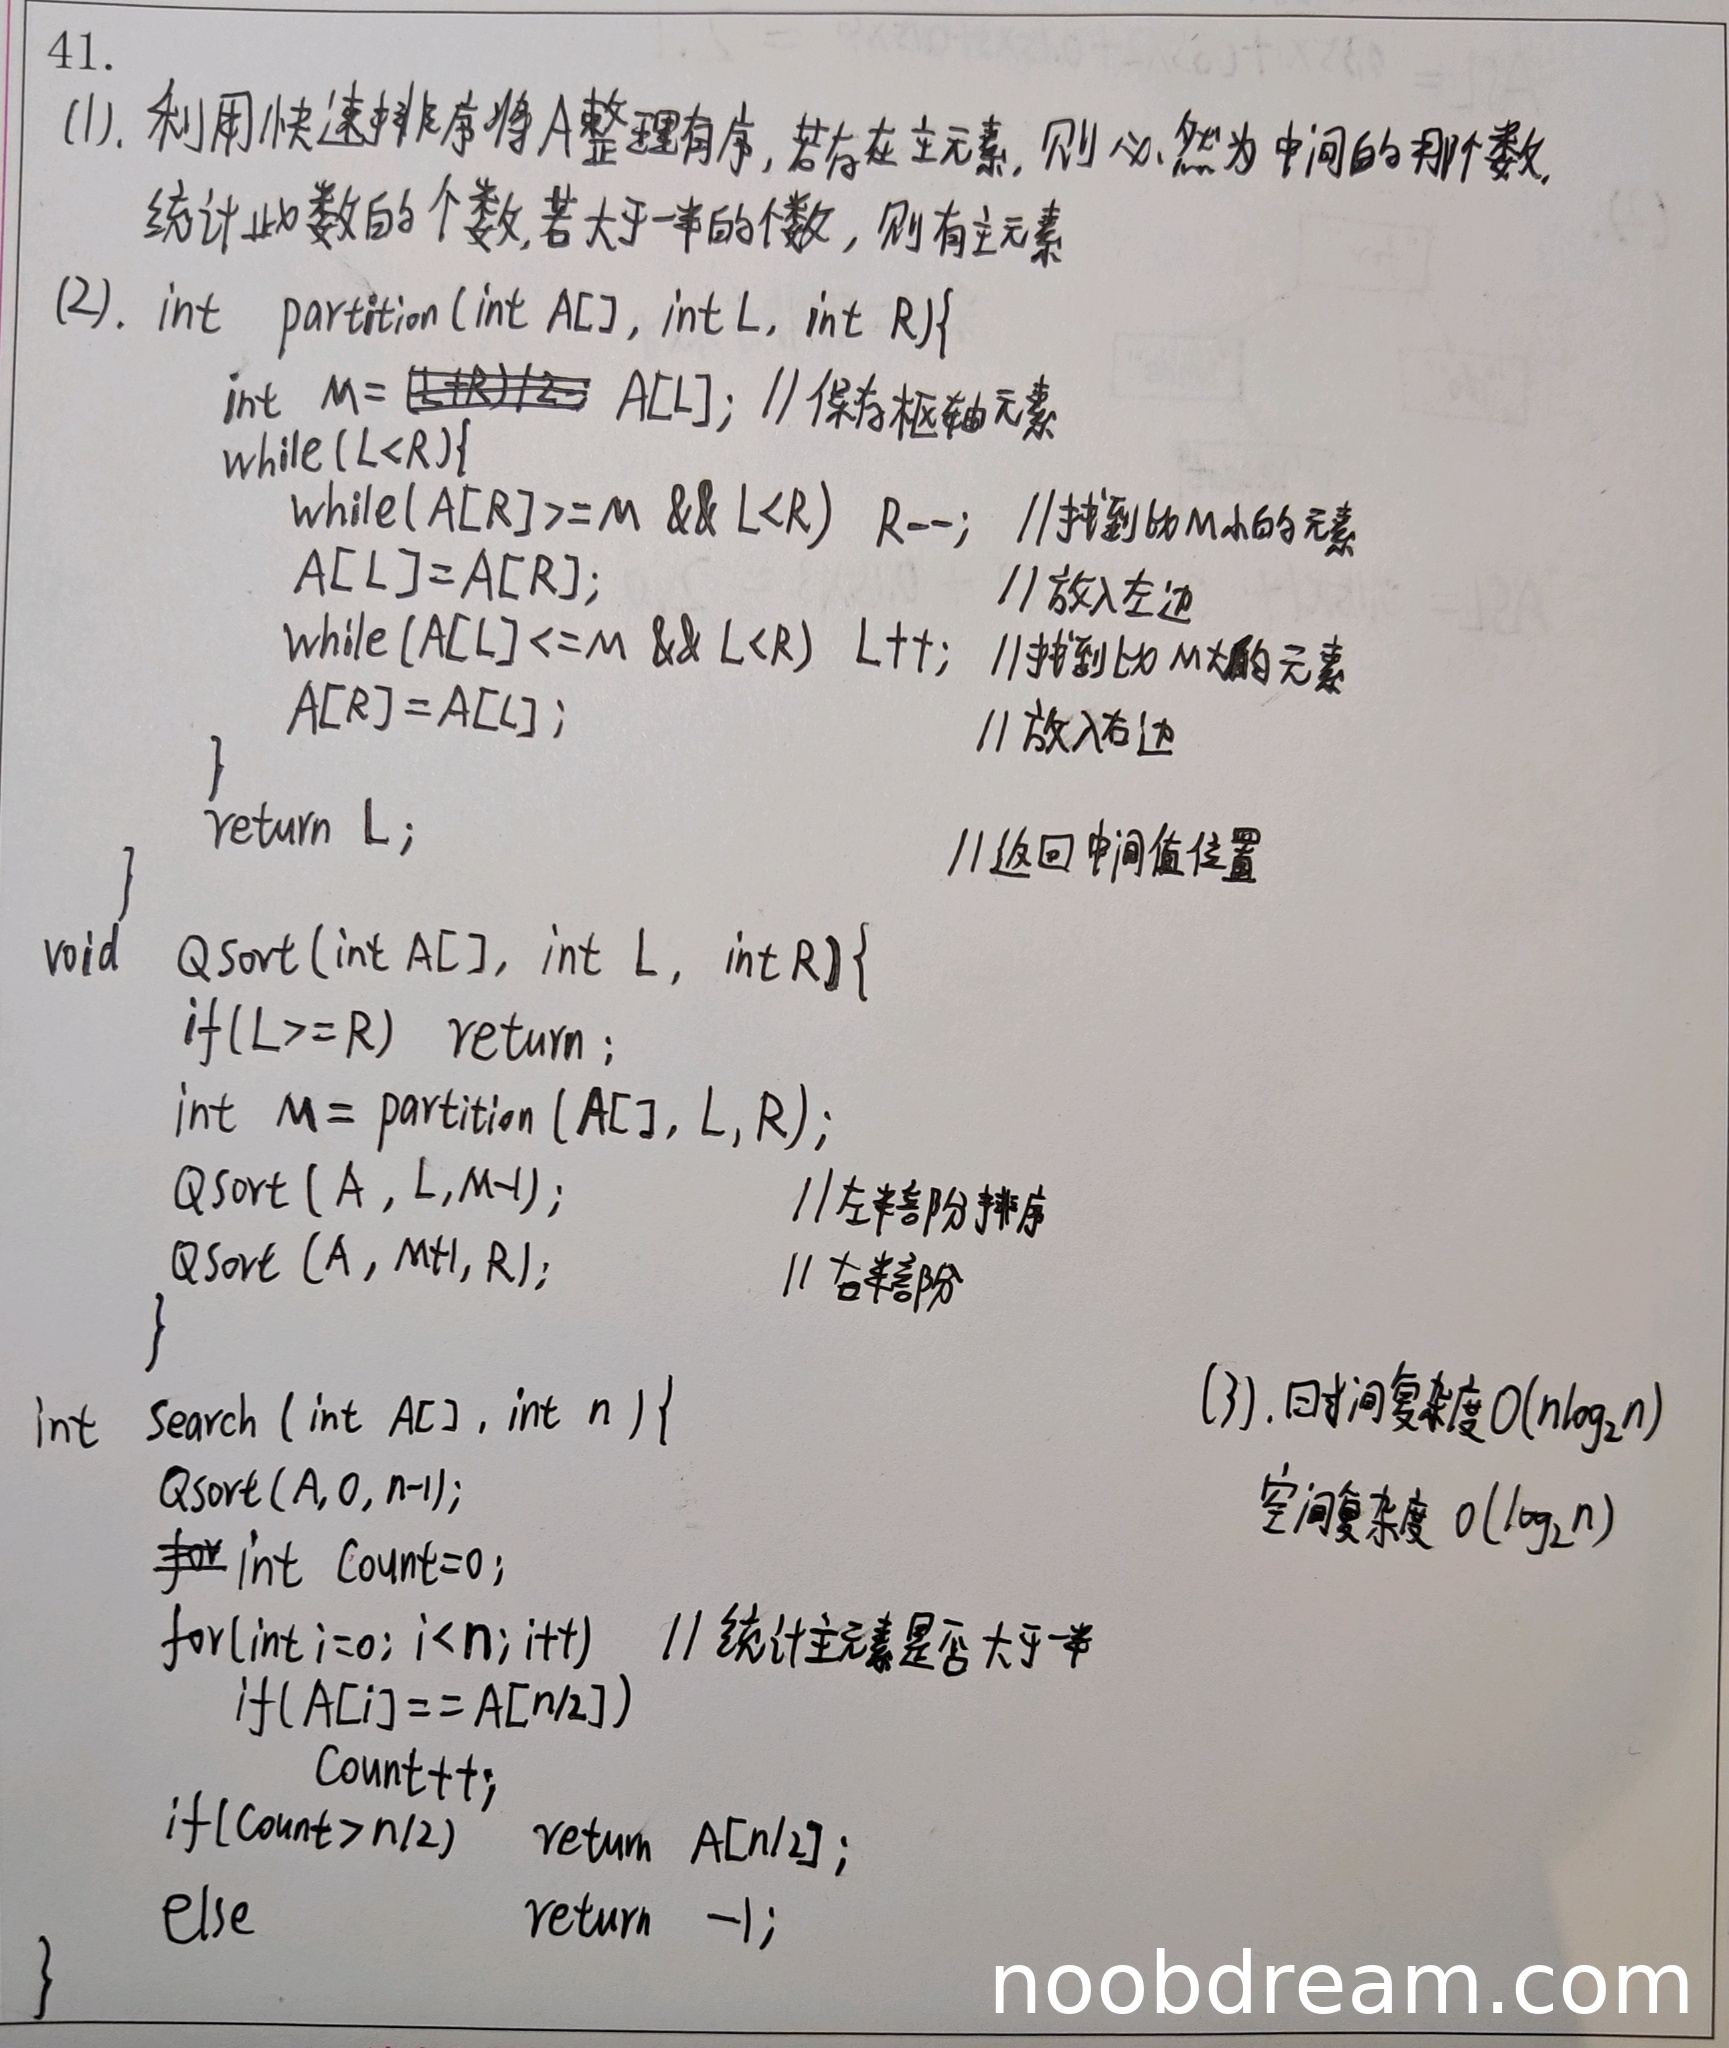 41.
(1). 利用快速排序将A整理有序,若存在主元素,则必然为中间的那个数,
统计此数的个数,若大于一半的个数,则有主元素
(2). int partition(int A[], int L, int R){
int M= A[L]; //保存枢轴元素
while(L<R){
while(A[R]>=M && L<R) R--; //找到比M小的元素
A[L]=A[R]; //放入左边
while(A[L]<=M && L<R) L++; //找到比M大的元素
A[R]=A[L]; //放入右边
}
return L; //返回中间值位置
}
void Qsort(int A[], int L, int R){
if(L>=R) return;
int M= partition(A[], L, R);
Qsort(A, L, M-1); //左半部分排序
Qsort(A, M+1, R); //右半部分
}
int Search(int A[], int n){
(3). 时间复杂度O(nlog₂n)
Qsort(A,0,n-1);
空间复杂度 O(log₂n)
for int Count=0;
for(int i=0; i<n; i++) //统计主元素是否大于一半
if(A[i]==A[n/2])
Count++;
if(Count>n/2) return A[n/2];
else return -1;
}
noobdream.com